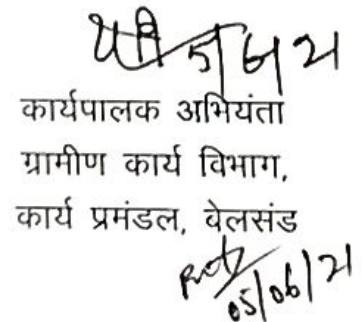 5/6/21
कार्यपालक अभियंता
ग्रामीण कार्य विभाग,
कार्य प्रमंडल, वेलसंड
05/06/21